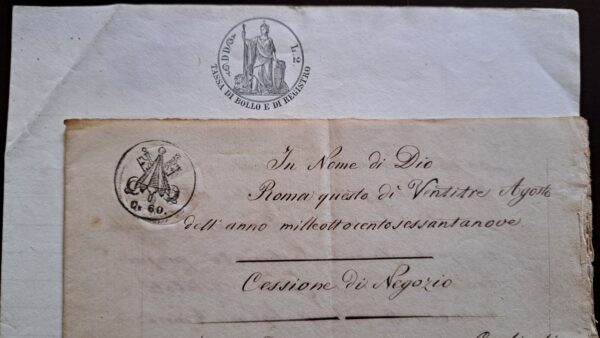 D D
L. 2
TASSA DI BOLLO E DI REGISTRO
Cs 60.
In Nome di Dio
Roma questo di Vntitre Agosto
dell' anno milleottocentosessantanove
Cessione di Negozio